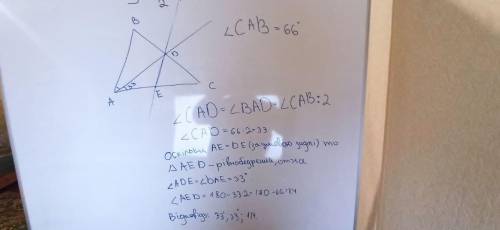 2
B
∠CAB = 66°
D
A
E
C
∠CAD = ∠BAD = ∠CAB:2
∠CAD = 66:2=33
Оскільки AE = DE (за умовою задачі) то
△ AED - рівнобедрений, отже
∠ADE = ∠DAE = 33°
∠AED = 180-33·2 = 180-66=114
Відповідь: 33°, 33°, 114